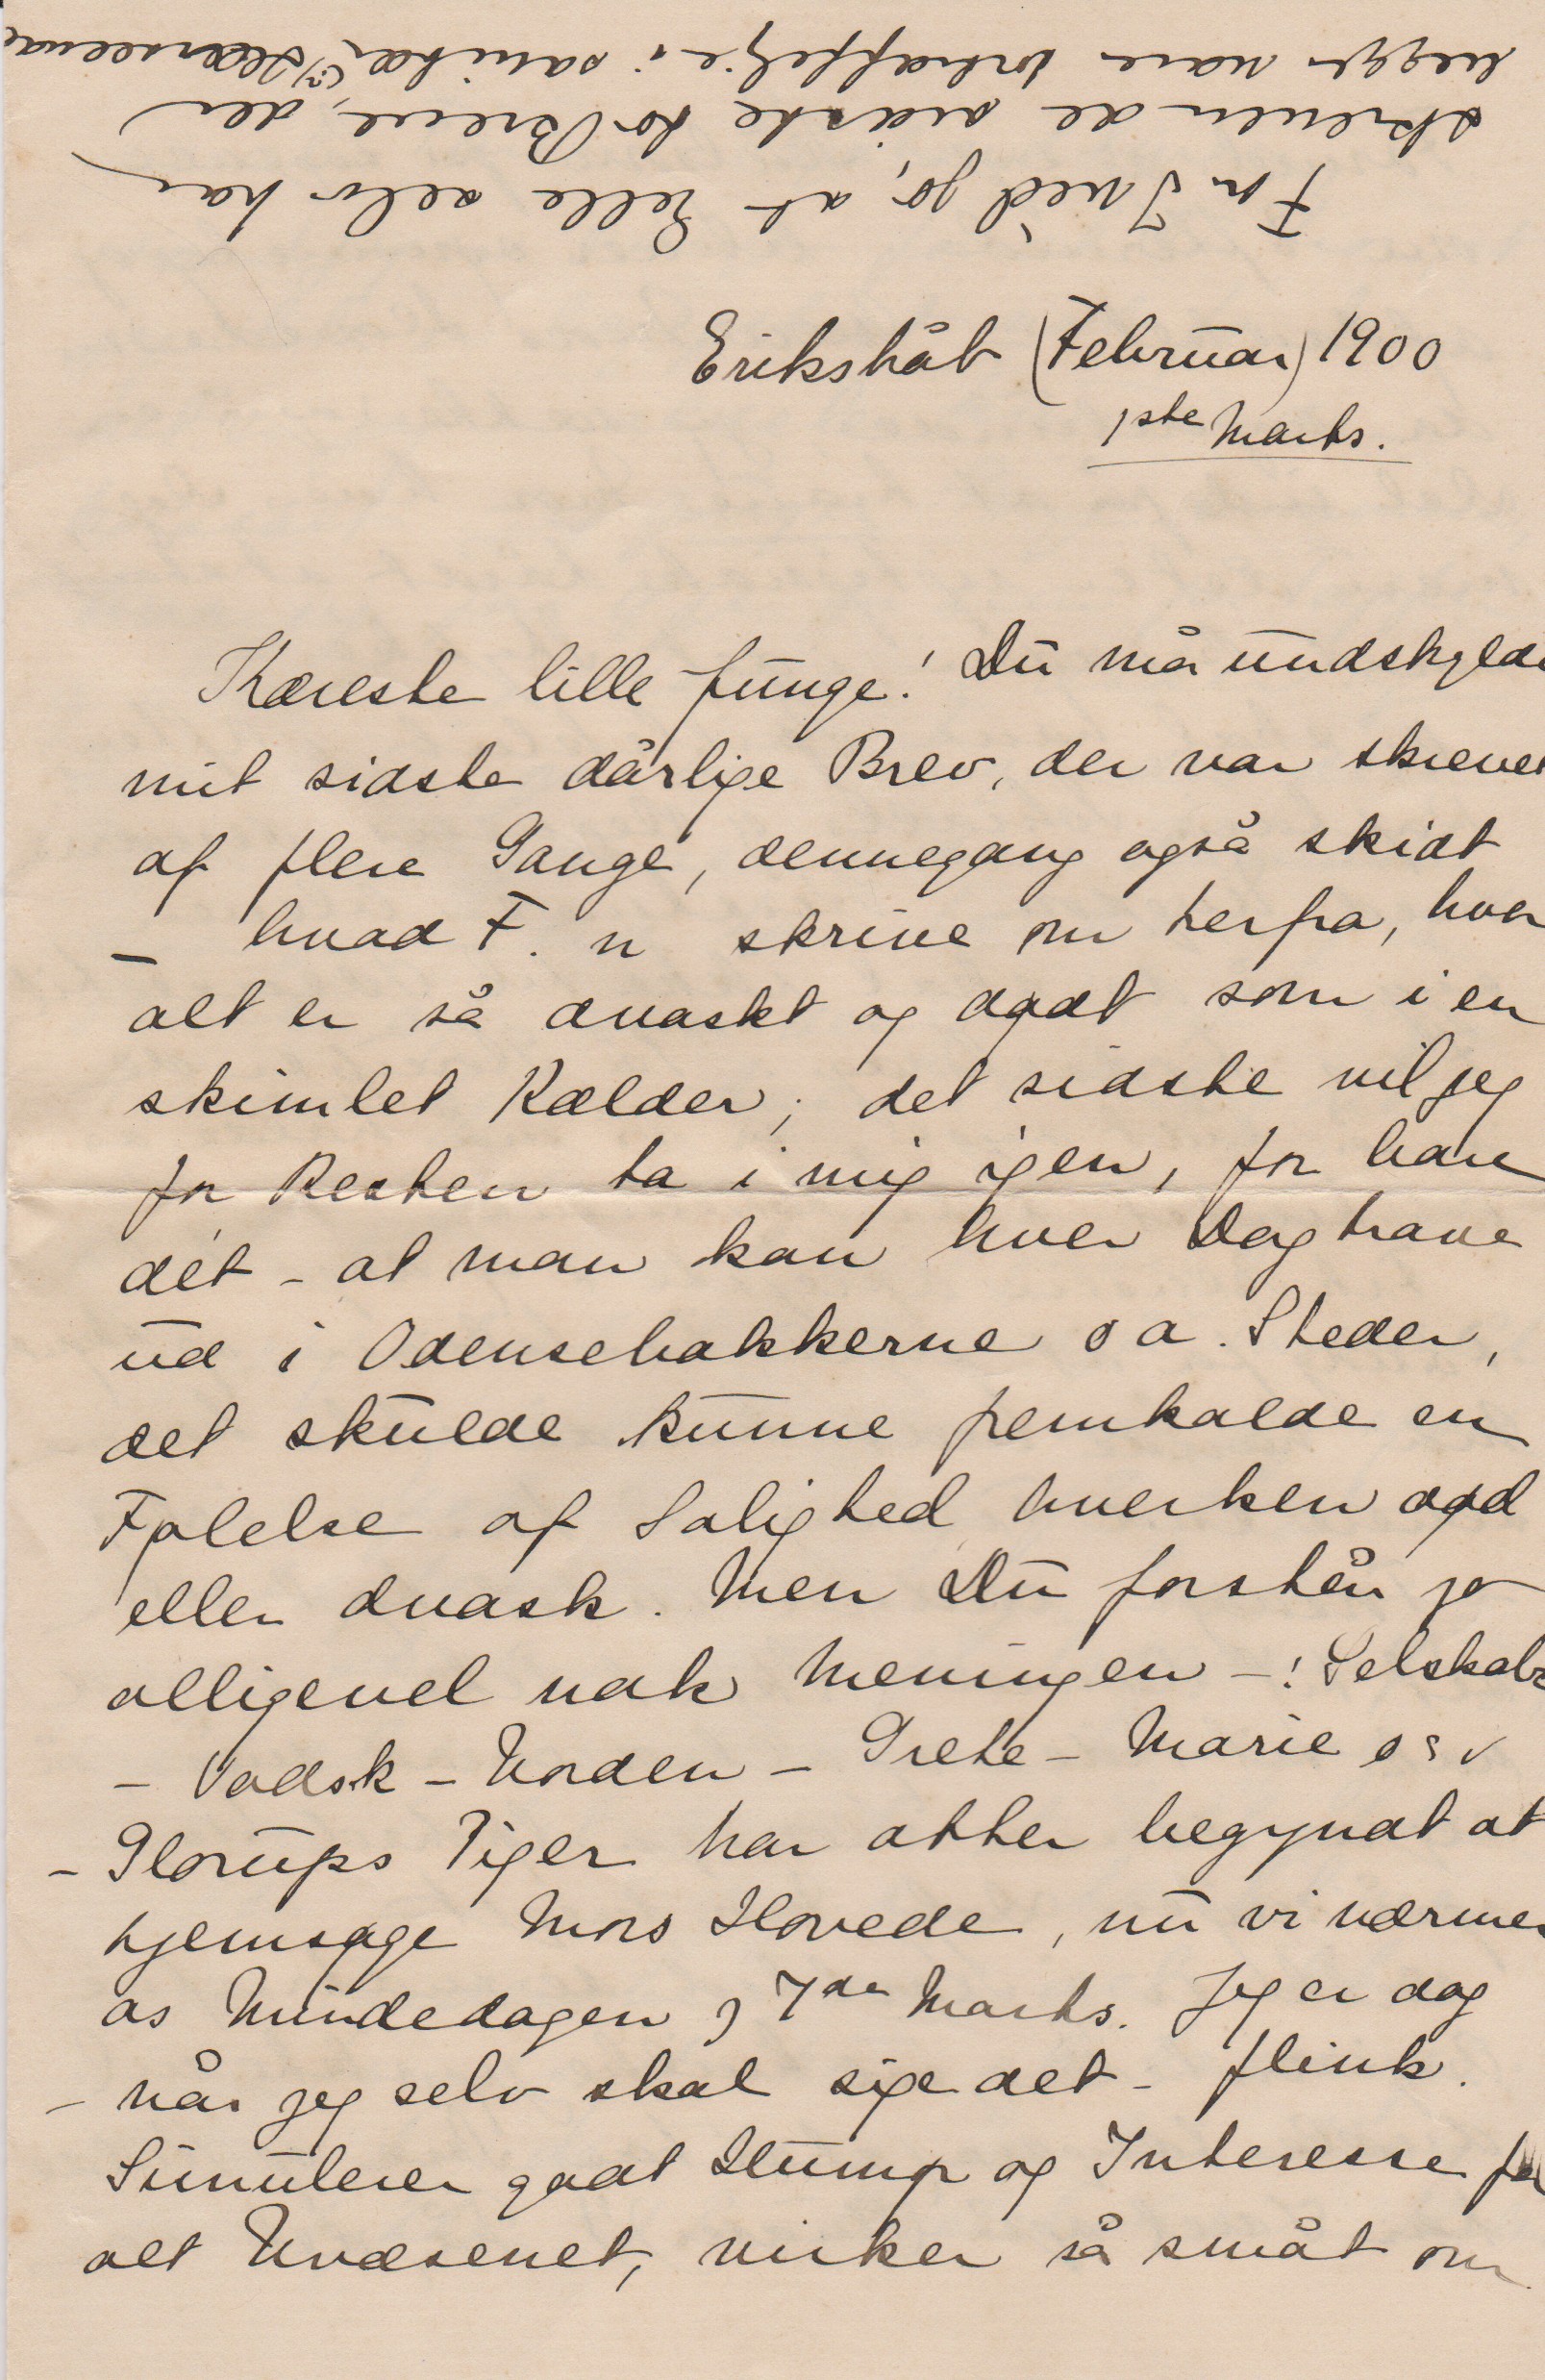 For I véd jo, at Pelle selv har
skreven de sidste to Breve, der
begge vare fortræffelige i sanitær (?) Henseende
Erikshåb (Februar) 1900
1ste Marts.
Kæreste lille Junge! Du må undskylde
mit sidste dårlige Brev, der var skrevet
af flere Gange, dennegang også skidt
– hvad F. n skrive om herfra, hvor
alt er så dvaskt og dødt som i en
skimlet Kælder; det sidste vil jeg
for Resten ta i mig igen, for bare
dét – at man kan hver Dag trave
ud i Odensebakkerne o a. Steder,
det skulde kunne fremkalde en
Følelse af Salighed hverken død
eller dvask. Men Du forstår jo
alligevel nok Meningen –! Selskabs
– Vadsk – Uorden – Grete – Marie osv
– Glorups Piger har atter begyndt at
hjemsøge Mors Hovede, nu vi nærmer
os Mindedagen 7de Marts. Jeg er dog
– når jeg selv skal sige det – flink.
Simulerer godt Humør og Interesse for
alt Uvæsenet, virker så småt om